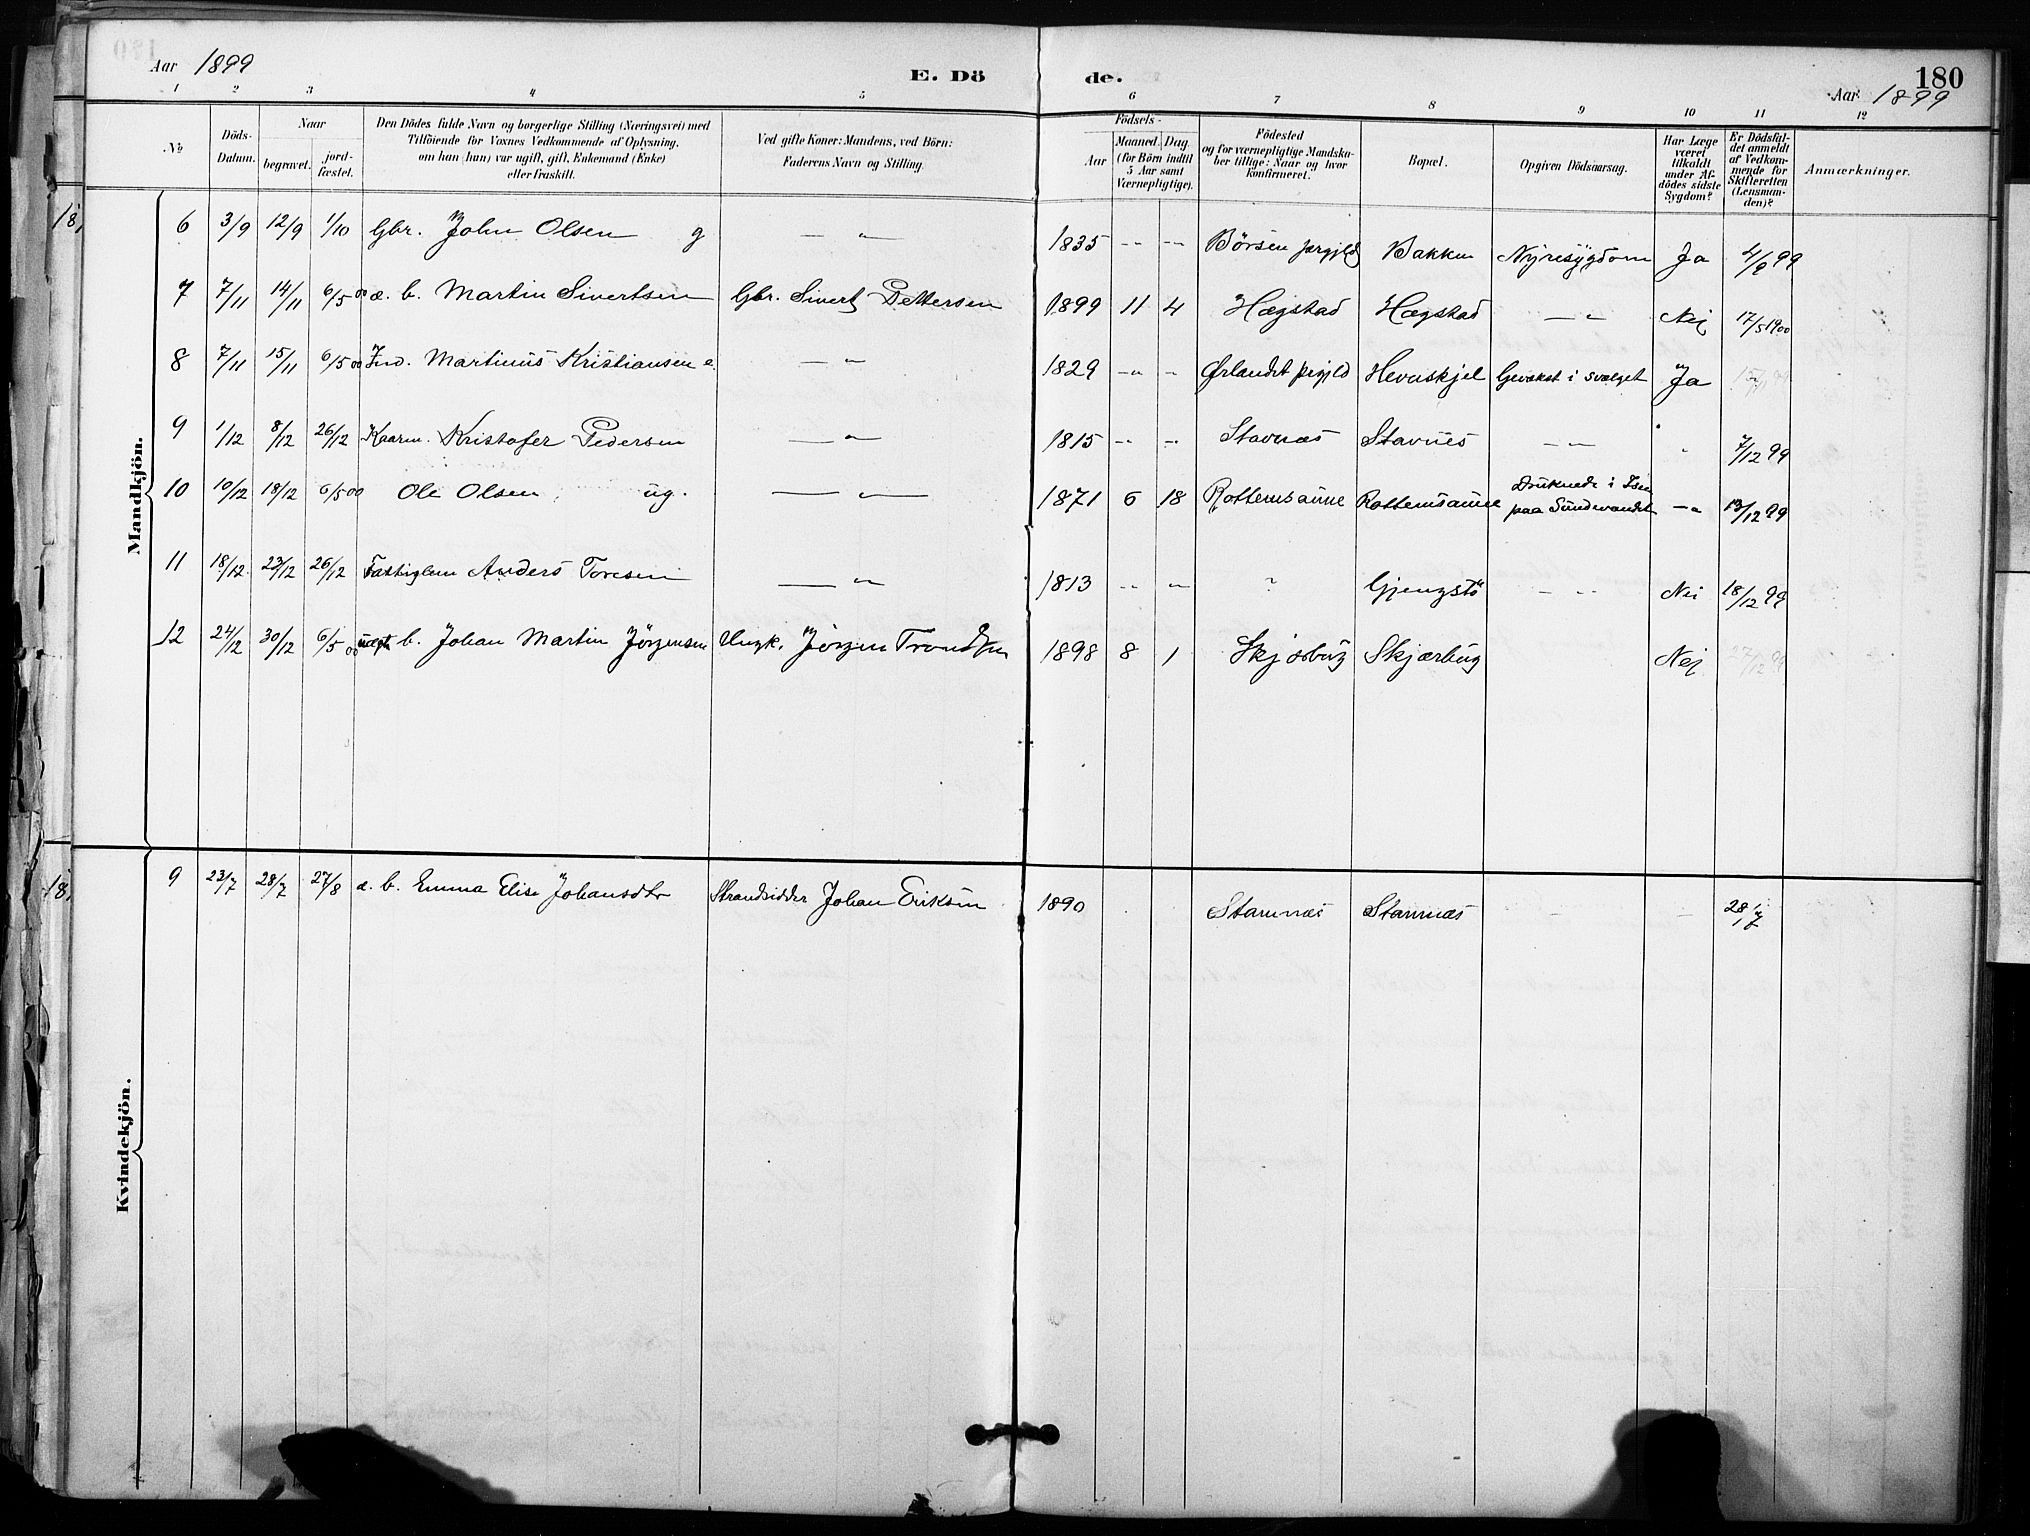 Aar 1899 E. Dö de. Aar 1899 180
1 2 3 4 5 6 7 8 9 10 11 12
№ Döds-Datum. Naar begravet. jord-fæstet. Den Dödes fulde Navn og borgerlige Stilling (Næringsvei) med Tilföiende for Voxnes Vedkommende af Oplysning, om han (hun) var ugift, gift, Enkemand (Enke) eller fraskilt. Ved gifte Koner: Mandens, ved Börn: Faderens Navn og Stilling. Födsels- Aar Maaned. Dag. (for Börn indtil 5 Aar samt Værnepligtige). Födested og for værnepligtige Mandskaber tillige: Naar og hvor konfirmeret. Bopæl. Opgiven Dödsaarsag. Har Læge været tilkaldt under Afdödes sidste Sygdom? Er Dödsfaldet anmeldt af Vedkommende for Skifteretten (Lensmanden)? Anmærkninger.
Mandkjön.
6 3/9 12/9 1/10 Gbr. John Olsen g — " — 1835 -- -- Börsen prgjld Bakken Nyresygdom Ja 4/9 99
7 7/11 14/11 6/5 00 æ. b. Martin Sivertsen Gbr. Sivert Pettersen 1899 11 4 Hægstad Hægstad — " Nei 17/5 1900
8 7/11 15/11 6/5 00 Ind. Martinus Kristiansen e. — " 1829 -- - Ørlandet prgjld Hevnskjel Gevækst i svælget Ja
9 1/12 8/12 26/12 Kaarm. Kristofer Pedersen — " 1815 -- -- Stavnæs Stavnes — " 7/12 99
10 10/12 18/12 6/5 00 Ole Olsen ug. — " — 1871 6 18 Rottemsaune Rottemsaune Druknede i Isen paa Sundevandet -- 13/12 99
11 18/12 23/12 26/12 Fattiglem Anders Toresen — " 1813 -- " " Gjengstö - -- Nei 18/12 99
12 24/12 30/12 6/5 00 uægte b. Johan Martin Jörgensen Ungk. Jörgen Trondsen 1898 8 1 Skjærbug Skjærbug Nei 27/12 99
Kvindekjön.
9 23/7 28/7 27/8 æ. b. Emma Elise Johansdtr Strandsidder Johan Eriksen 1890 Stamnæs Stamnæs - - 28/7